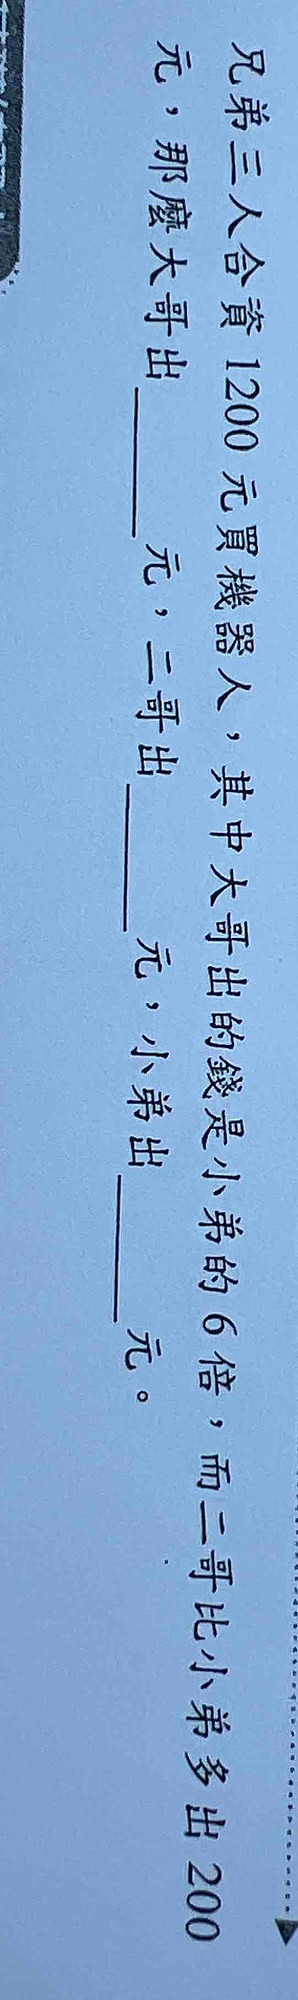 兄弟三人合資 1200 元買機器人，其中大哥出的錢是小弟的 6 倍，而二哥比小弟多出 200
元，那麼大哥出______元，二哥出______元，小弟出______元。